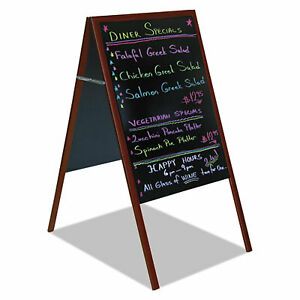 DINER SPECIALS
Falafel Greek Salad
Chicken Greek Salad
Salmon Greek Salad
$12.95
VEGETARIAN SPECIALS
Zucchini Pancake Platter
Spinach Pie Platter
$12.95
HAPPY HOURS
6pm - 9pm
All Glass of WINE two for One